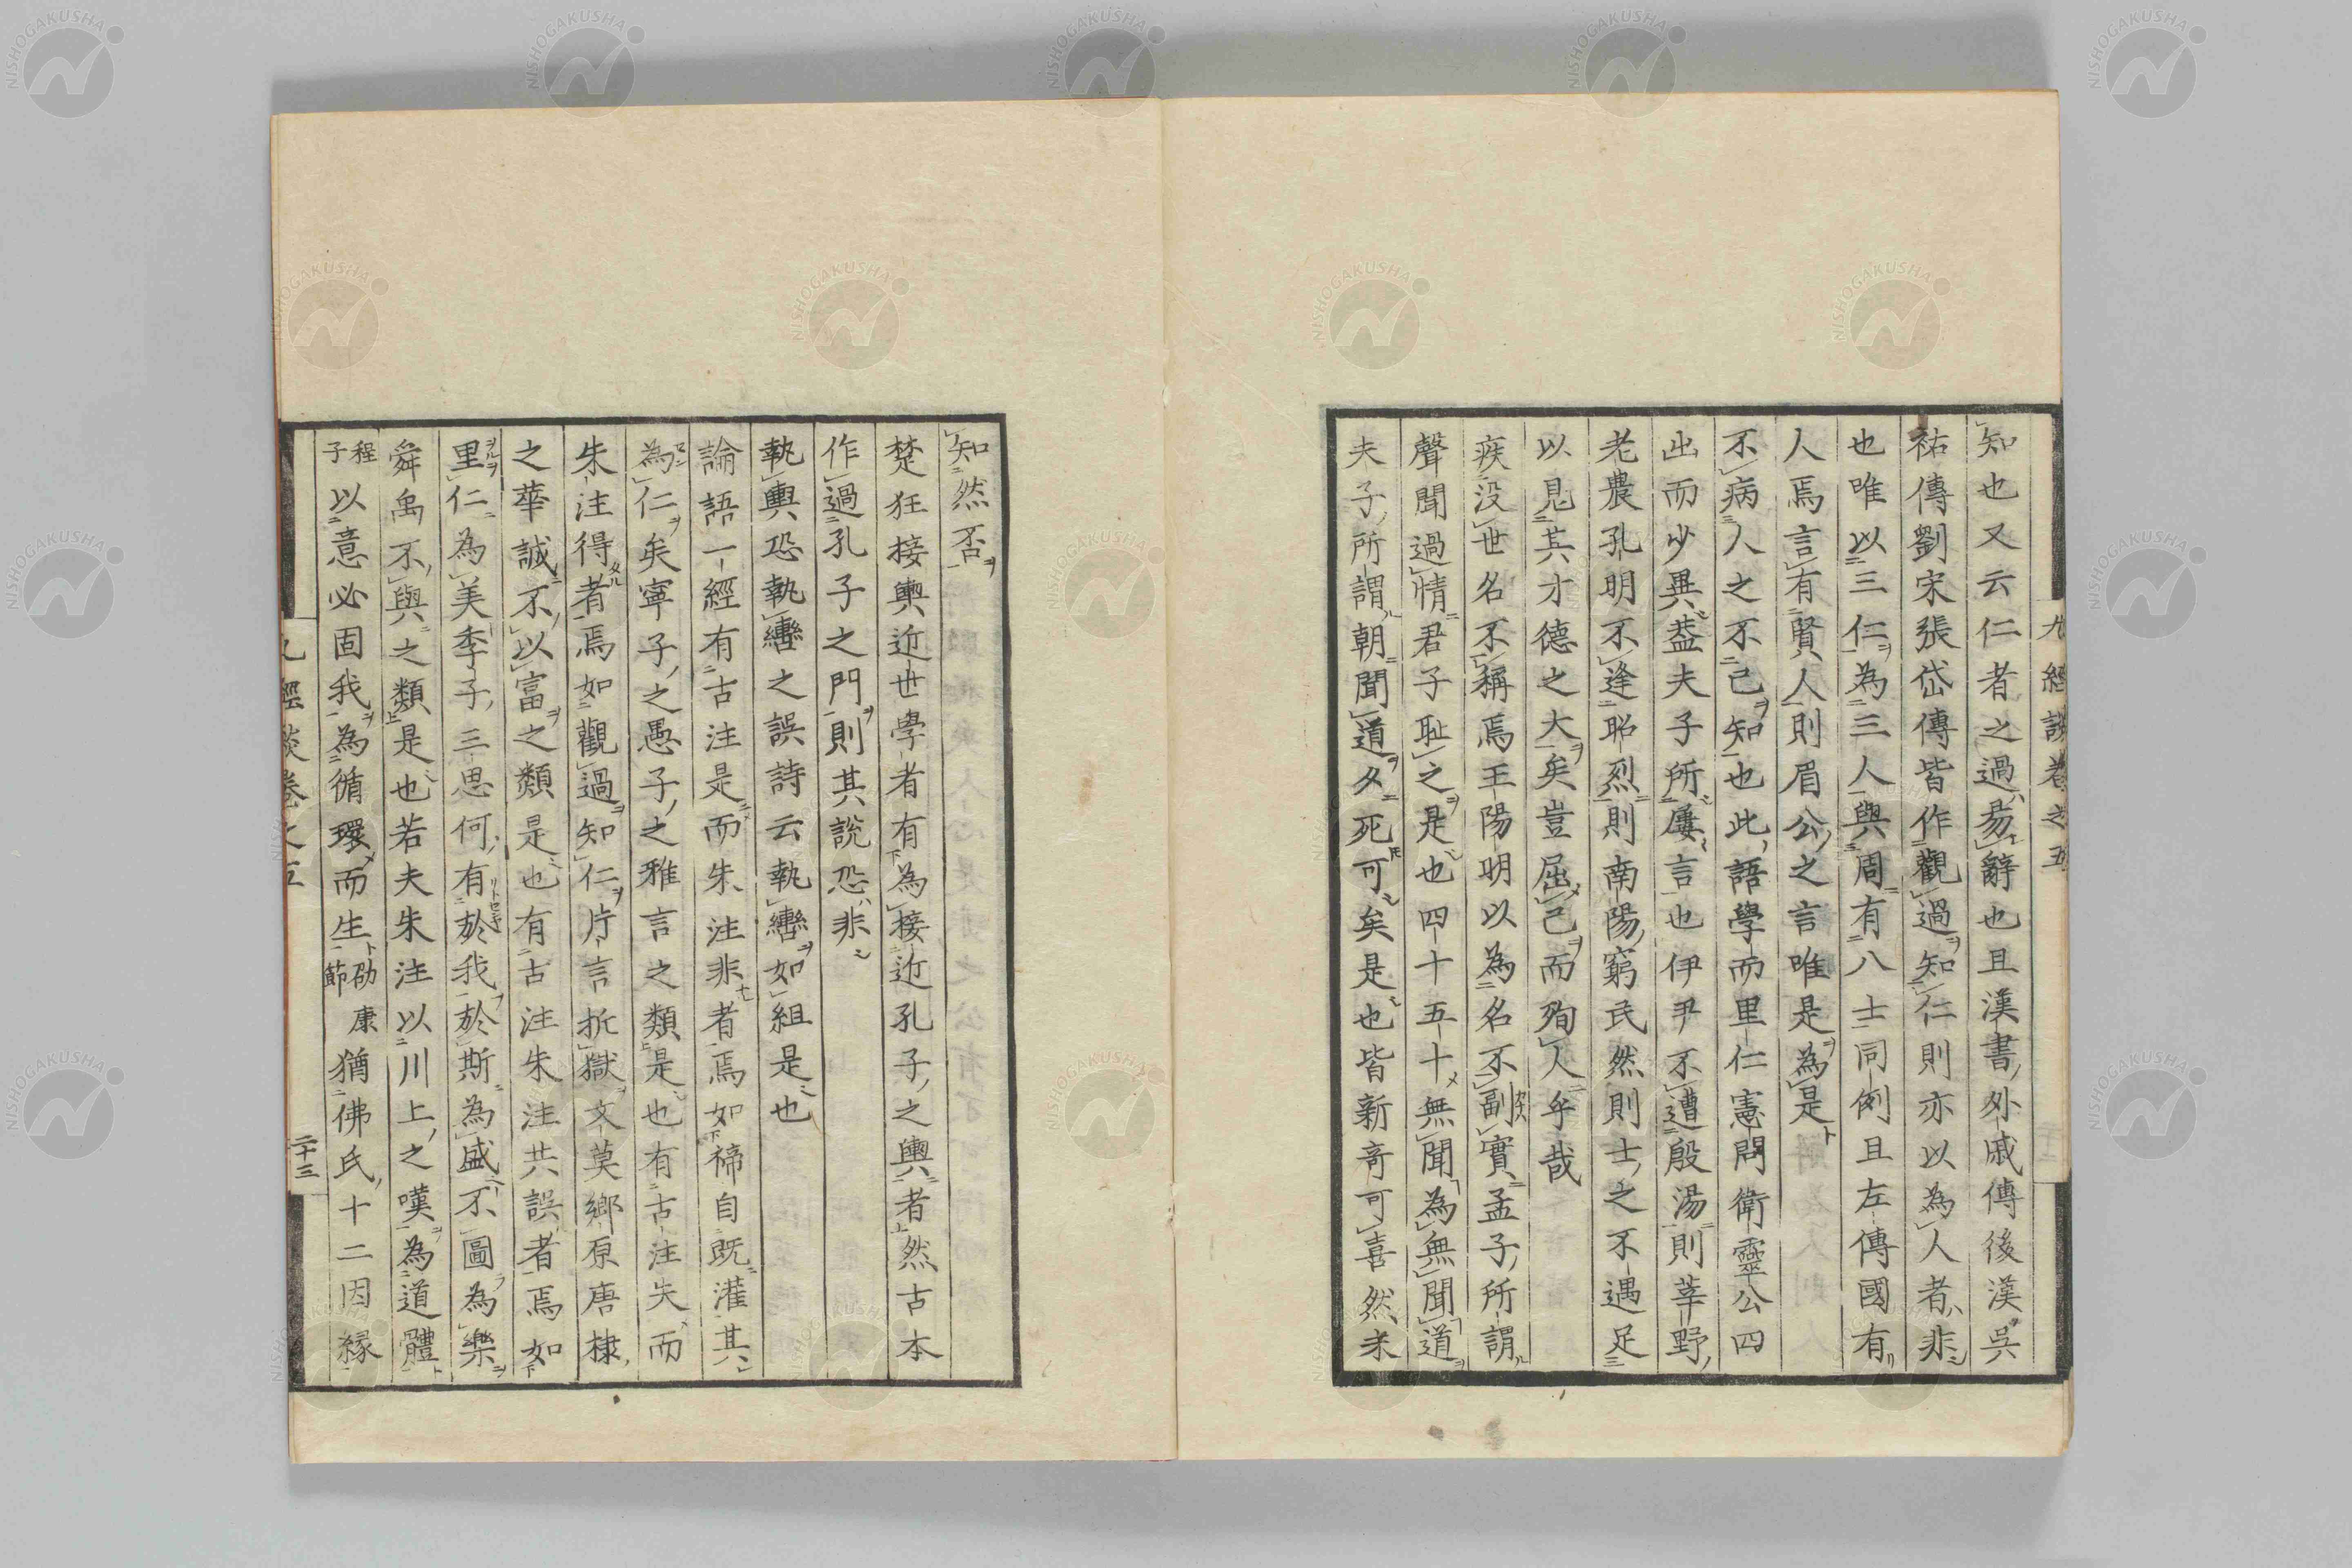 九經談卷之五
知也又云仁者之過易辭也且漢書外戚傳後漢吳
祐傳劉宋張岱傳皆作觀過知仁則亦以為人者非
也唯以三仁為三人與周有八士同例且左傳國有
人焉言有賢人則眉公之言唯是為是
不病人之不己知也此語學而里仁憲問衛靈公四
出而少異蓋夫子所屢言也伊尹不遭殷湯則莘野
老農孔明不逢昭烈則南陽窮民然則士之不遇足
以見其才德之大矣豈屈己而殉人乎哉
疾沒世名不稱焉王陽明以為名不副實孟子所謂
聲聞過情君子恥之是也四十五十無聞為無聞道
夫子所謂朝聞道夕死可矣是也皆新奇可喜然未
知然否
楚狂接輿近世學者有為接近孔子之輿者然古本
作過孔子之門則其說恐非
執輿恐執轡之誤詩云執轡如組是也
論語一經有古注是而朱注非者焉如禘自既灌其
為仁矣寧子之愚子之雅言之類是也有古注失而
朱注得者焉如觀過知仁片言折獄文莫鄉原唐棣
之華誠不以富之類是也有古注朱注共誤者焉如
里仁為美季子三思何有於我於斯為盛不圖為樂
舜禹不與之類是也若夫朱注以川上之嘆為道體
程子以意必固我為循環而生邵康節猶佛氏十二因縁
九經談卷之五
二十三
NISHOGAKUSHA